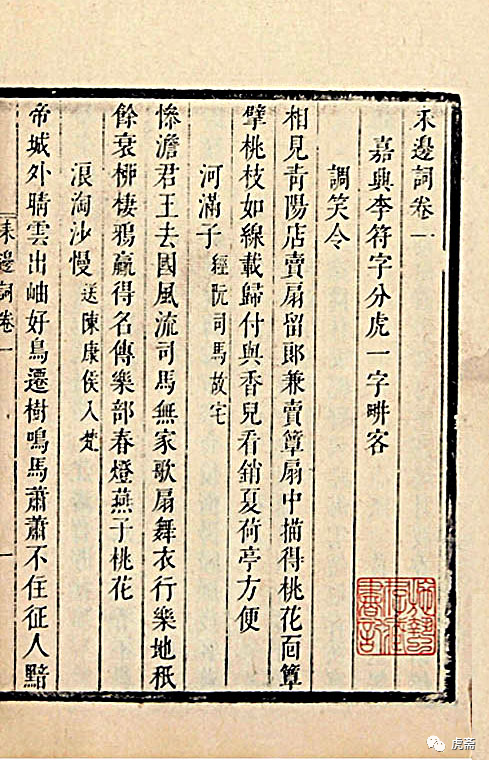 耒邊詞卷一
嘉興李符字分虎一字畊客
調笑令
相見青陽店賣扇留郎兼賣簟扇中描得桃花面簟
擘桃枝如線載歸付與香兒看銷夏荷亭方便
河滿子 經阮司馬故宅
慘澹君王去國風流司馬無家歌扇舞衣行樂地秖
餘衰栁棲鴉贏得名傳樂部春燈燕子桃花
浪淘沙慢 送陳康侯入梵
帝城外晴雲出岫好鳥遷樹鳴馬蕭蕭不住征人黯
耒邊詞卷一 一
虎斋